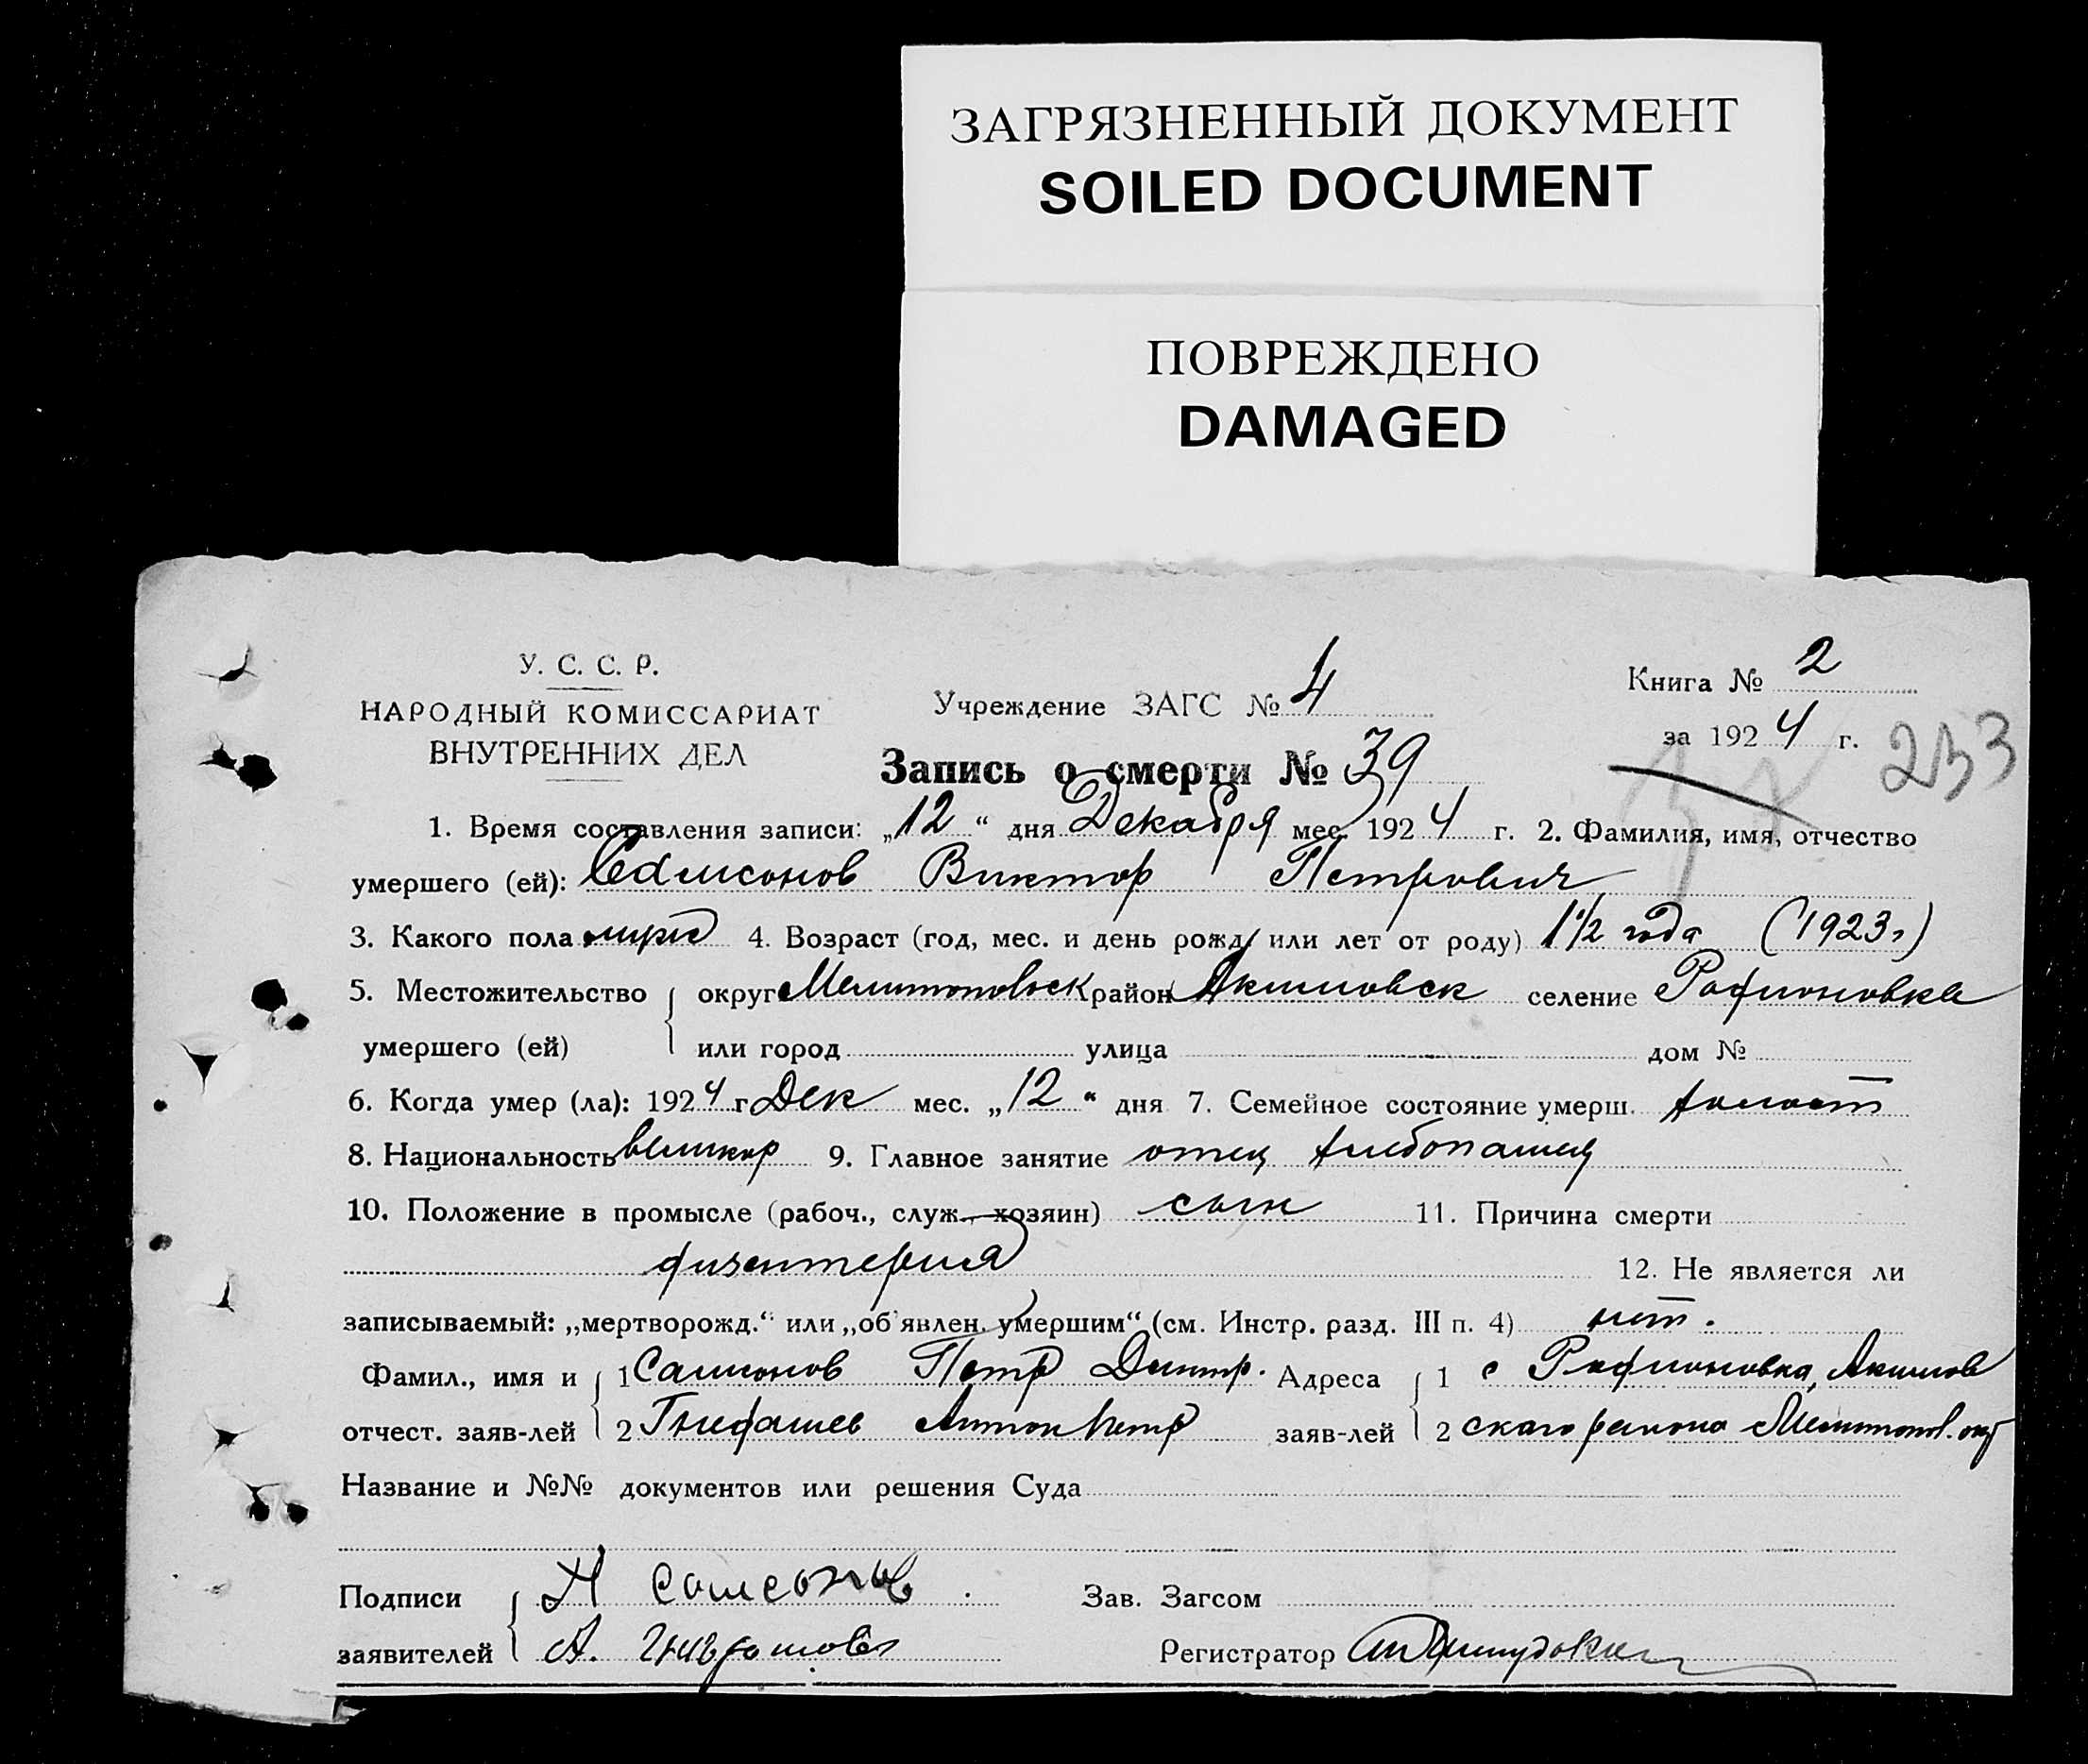 ЗАГРЯЗНЕННЫЙ ДОКУМЕНТ
SOILED DOCUMENT
ПОВРЕЖДЕНО
DAMAGED
У. С. С. Р.
НАРОДНЫЙ КОМИССАРИАТ
ВНУТРЕННИХ ДЕЛ
Учреждение ЗАГС № 4
Книга № 2
за 1924 г.
233
Запись о смерти № 39
1. Время составления записи: „12“ дня Декабря мес. 1924 г. 2. Фамилия, имя, отчество
умершего (ей): Самсонов Виктор Петрович
3. Какого пола мужс 4. Возраст (год, мес. и день рожд. или лет от роду) 1 1/2 года (1923г)
5. Местожительство округ Мелитоповск район Акимовск селение Родионовка
умершего (ей) или город улица дом №
6. Когда умер (ла): 1924 г Дек мес. „12“ дня 7. Семейное состояние умерш. холост
8. Национальность великор 9. Главное занятие отец хлебопашец
10. Положение в промысле (рабоч., служ., хозяин) сын 11. Причина смерти
дизентерия 12. Не является ли
записываемый: „мертворожд.“ или „об'явлен. умершим“ (см. Инстр. разд. III п. 4) нет.
Фамил., имя и 1 Самсонов Петр Дмитр. Адреса 1 с Родионовка, Акимов
отчест. заяв-лей 2 Антон Петр заяв-лей 2 скаго района Мелитопол. окр
Название и №№ документов или решения Суда
Подписи П Самсонов
заявителей А.
Зав. Загсом
Регистратор